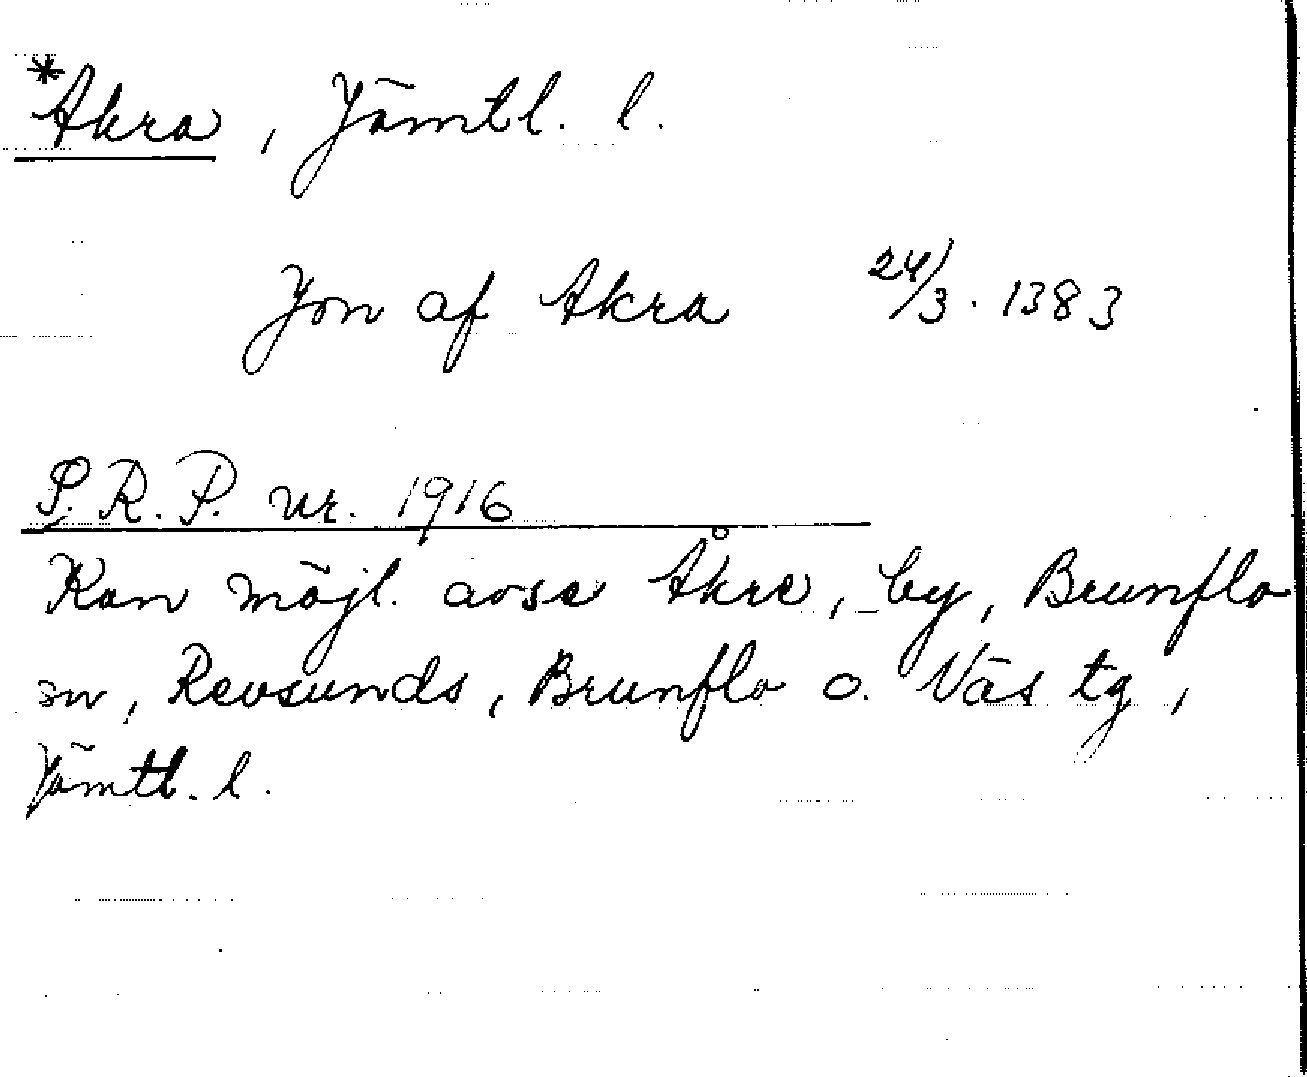 *Akra, Jämtl. l.
Jon af Akra 24/3. 1383
S.R.P. nr. 1916
Kan möjl. avse Åkre, by, Brunflo
sn, Revsunds, Brunflo o. Näs tg,
Jämtl. l.